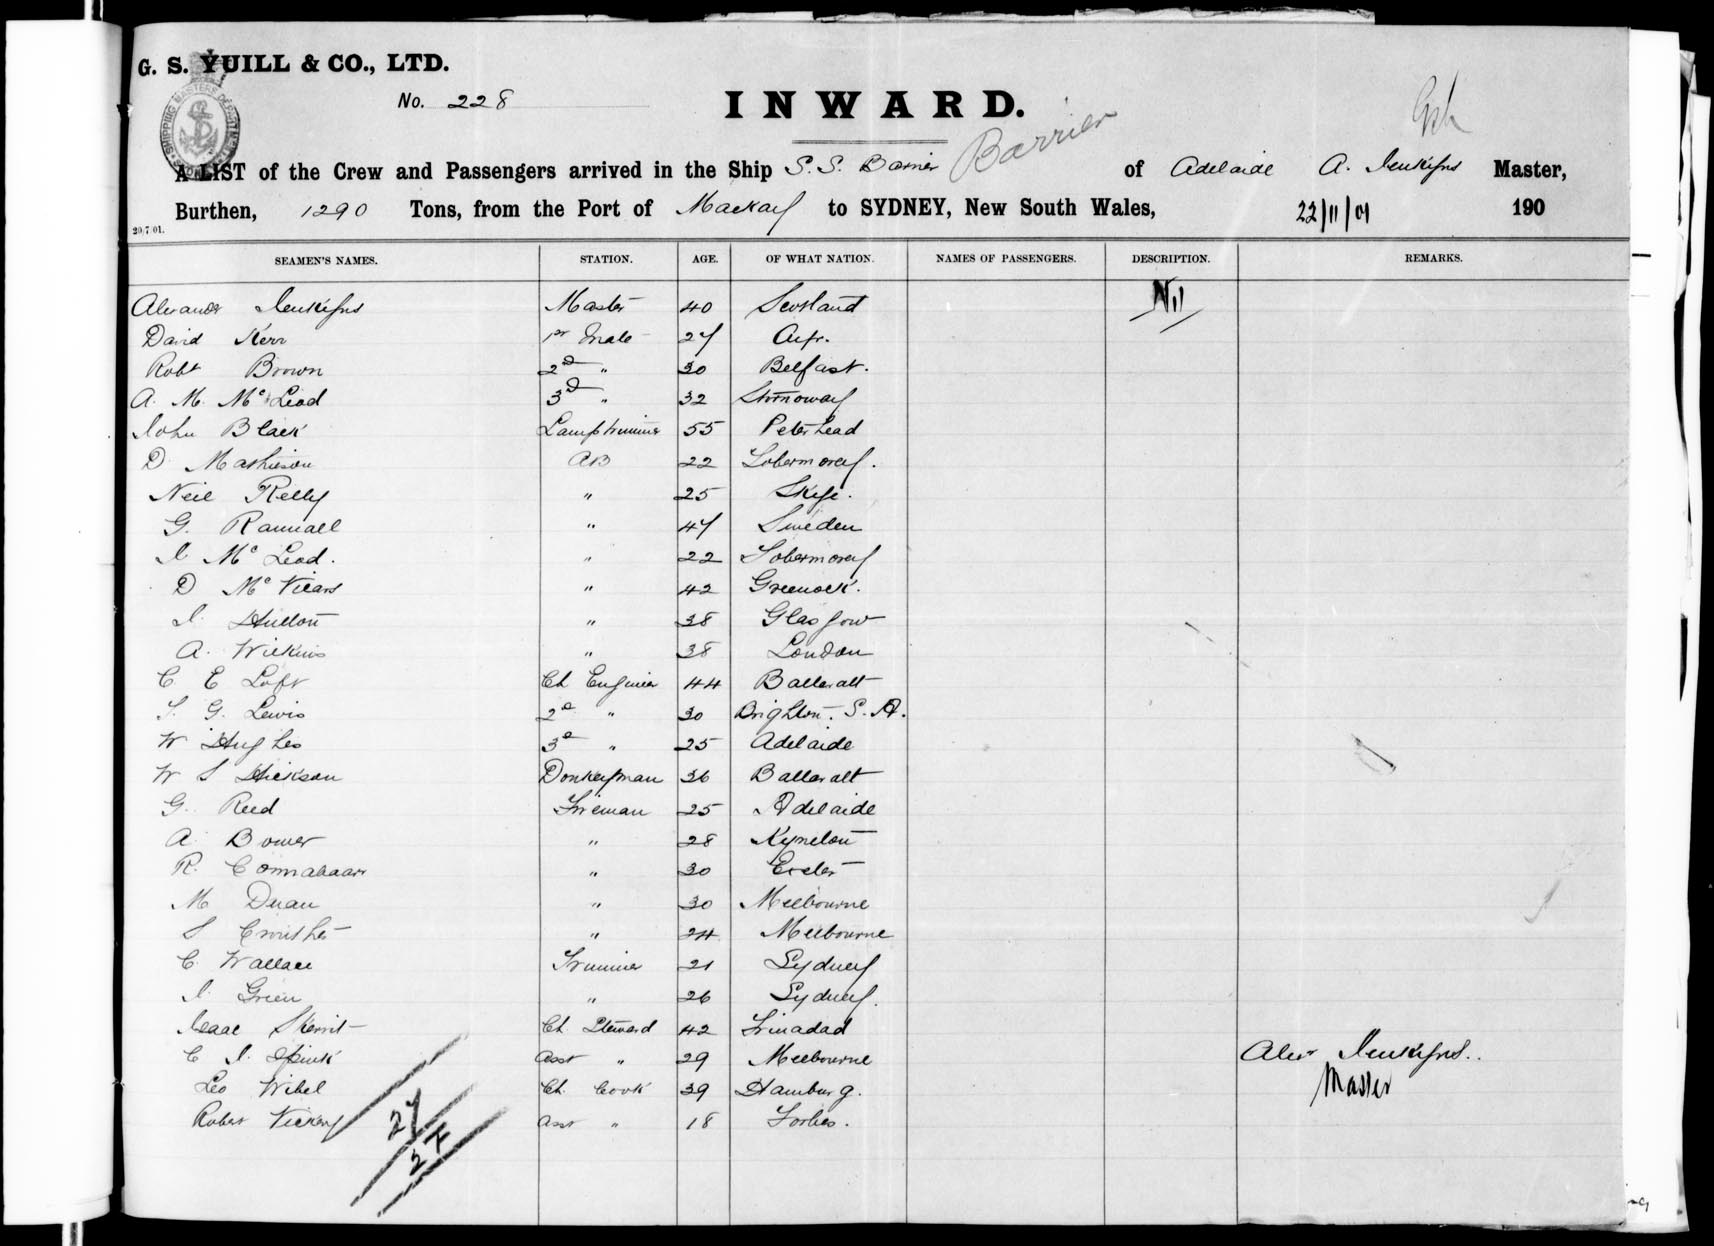 G. S. YUILL & CO., LTD.
No. 228
INWARD.
Barrier
A LIST of the Crew and Passengers arrived in the Ship S. S. Barrier of Adelaide A. Jenkyns Master,
Burthen, 1290 Tons, from the Port of Mackay to SYDNEY, New South Wales, 22/11/01 190
20/7/01.
SEAMEN'S NAMES. STATION. AGE. OF WHAT NATION. NAMES OF PASSENGERS. DESCRIPTION. REMARKS.
Alexander Jenkyns Master 40 Scotland Nil
David Kerr 1st Mate 27 Ayr.
Robt Brown 2d " 30 Belfast.
A. M. McLeod 3d " 32 Stornoway
John Black Lamptrimmer 55 Peterhead
D Mathieson AB 22 Tobermorey.
Neil Kelly " 25 Skye.
G. Rannall " 47 Sweden
J McLeod. " 22 Tobermorey
D McVicars " 42 Greenock.
J. Hutton " 38 Glasgow
A. Wilkins " 38 London
C E Loft Ch Engineer 44 Ballaratt
T. G. Lewis 2d " 30 Brighton. S. A.
W Hughes 3d " 25 Adelaide
W S Hickson Donkeyman 36 Ballaratt
G. Reed Fireman 25 Adelaide
A. Bower " 28 Kyneton
R. " 30 Exeter
M Duan " 30 Melbourne
S Crowther " 24 Melbourne
C. Wallace Trimmer 21 Sydney
J. Green " 26 Sydney.
Isaac Skerrit Ch Steward 42 Trinadad
C J. Spink Asst " 29 Melbourne Alexr Jenkyns..
Leo Wibel Ch. Cook 39 Hamburg. Master
Robert Vickery Asst " 18 Forbes.
27
27